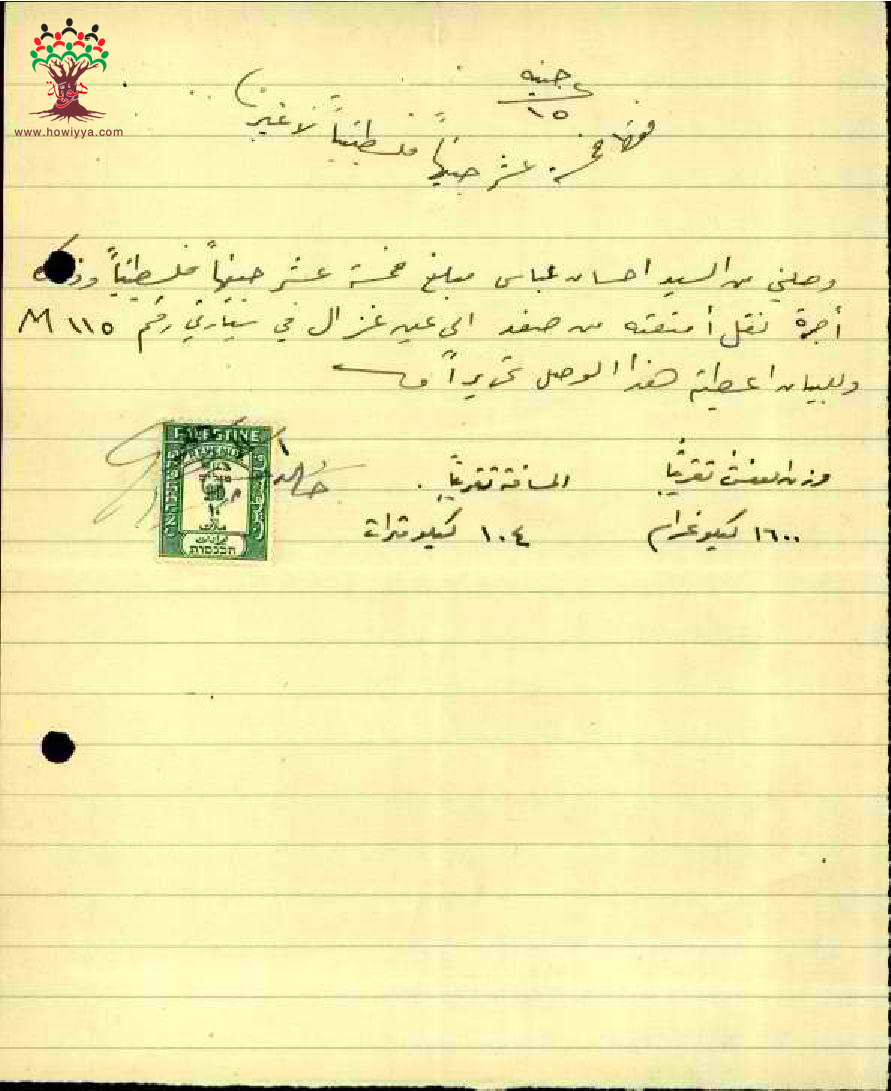 هوية
www.howiyya.com
جنيه
١٥
فقط خمسة عشر جنيهاً فلسطينياً لا غير
وصلني من السيد احسان عباس مبلغ خمسة عشر جنيهاً فلسطينياً وذلك
أجرة نقل أمتعته من صفد الى عين غزال في سيارتي رقم M ١١٥
وللبيان اعطيته هذا الوصل تحريراً في
وزن العفش تقريباً
المسافة تقريباً
١٦٠٠ كيلوغرام
١٠٤ كيلومترات
خالد
PALESTINE
REVENUE
١٠
ملات
ايرادات
הכנסות